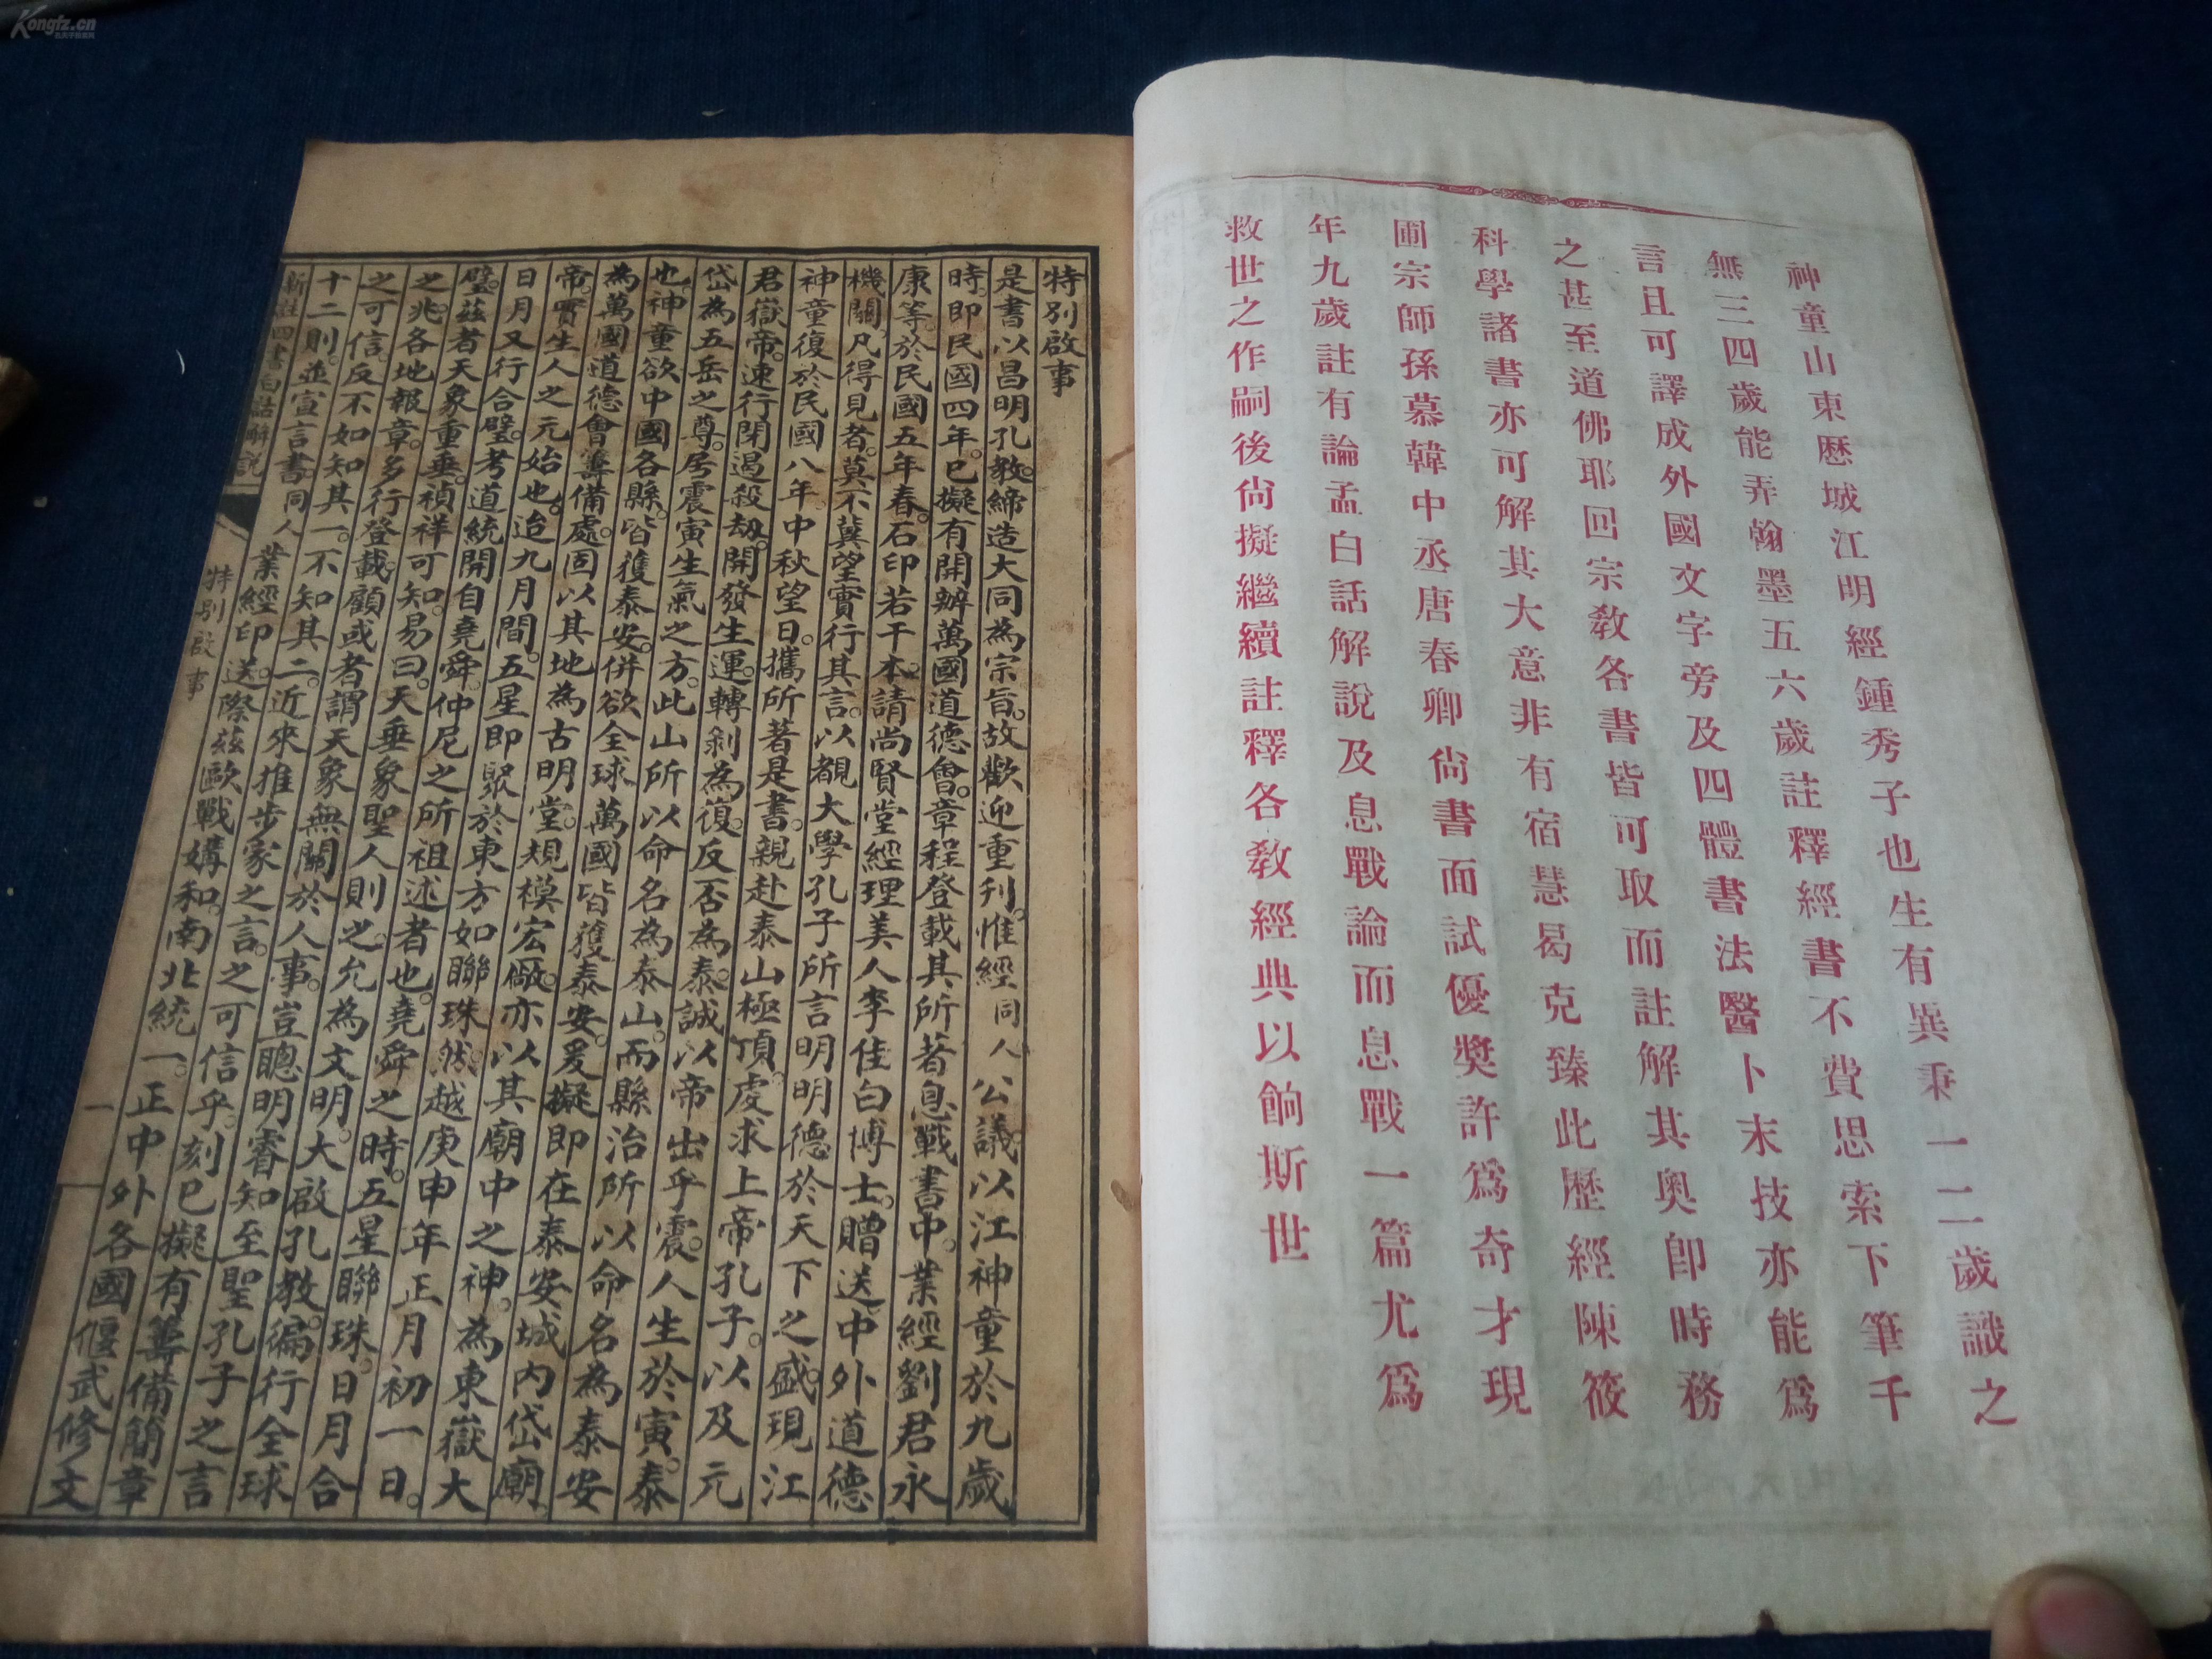 神童山東歷城江明經鍾秀子也生有異秉一二歲識之
無三四歲能弄翰墨五六歲註釋經書不費思索下筆千
言且可譯成外國文字旁及四體書法醫卜末技亦能爲
之甚至道佛耶回宗敎各書皆可取而註解其奧卽時務
科學諸書亦可解其大意非有宿慧曷克臻此歷經陳筱
圃宗師孫慕韓中丞唐春卿尙書面試優奬許爲奇才現
年九歲註有論孟白話解說及息戰論而息戰一篇尤爲
救世之作嗣後尙擬繼續註釋各敎經典以餉斯世
特別啟事
是書以昌明孔教。締造大同為宗旨。故歡迎重刊。惟經同人公議。以江神童於九歲
時。即民國四年。已擬有開辦萬國道德會。章程登載其所著息戰書中。業經劉君永
康等。於民國五年春。石印若干本。請尚賢堂經理美人李佳白博士。贈送中外道德
機關。凡得見者。莫不冀望實行其言。以覩大學孔子所言明明德於天下之盛。現江
神童復於民國八年中秋望日。攜所著是書。親赴泰山極頂。虔求上帝孔子。以及元
君嶽帝。速行閉遏殺劫。開發生運。轉剝為復。反否為泰。誠以帝出乎震。人生於寅。泰
岱為五岳之尊。居震寅生氣之方。此山所以命名為泰山。而縣治所以命名為泰安
也。神童欲中國各縣。皆獲泰安。併欲全球萬國皆獲泰安。爰擬即在泰安城內岱廟
為萬國道德會籌備處。固以其地為古明堂。規模宏厰。亦以其廟中之神。為東嶽大
帝。實生人之元始也。迨九月間。五星即聚於東方如聯珠。然越庚申年正月初一日。
日月又行合璧。考道統開自堯舜。仲尼之所祖述者也。堯舜之時。五星聯珠。日月合
璧。茲者天象重垂。禎祥可知。易曰。天垂象聖人則之。允為文明。大啟孔教。徧行全球
之兆。各地報章。多行登載。顧或者謂天象無關於人事。豈聰明睿知至聖孔子之言
之可信。反不如知其一。不知其二。近來推步家之言。之可信乎。刻已擬有籌備簡章
十二則。並宣言書。同人業經印送。際茲歐戰媾和。南北統一。正中外各國偃武修文
新註四書白話解說
特別啟事
一
Kongfz.cn